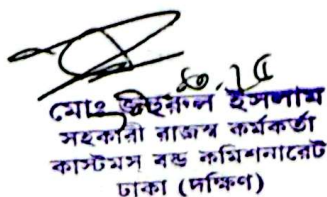 মোঃ জহিরুল ইসলাম
সহকারী রাজস্ব কর্মকর্তা
কাস্টমস বন্ড কমিশনারেট
ঢাকা (দক্ষিণ)